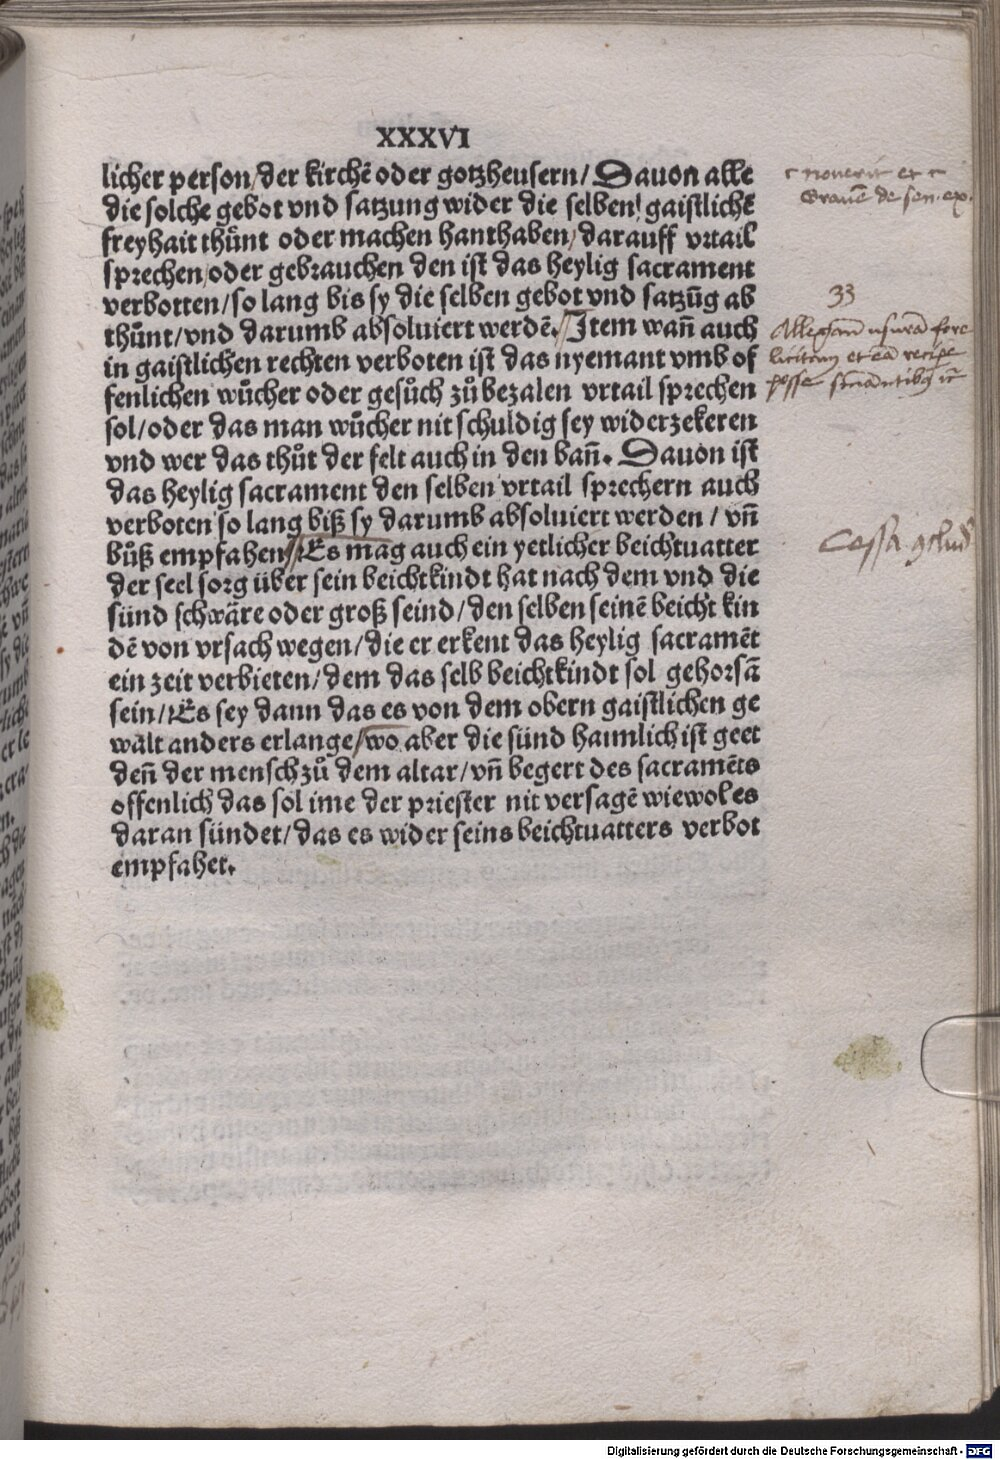 XXXVI
licher person/der kirchē oder gotzheusern/ Dauon alle
die solche gebot vnd satzung wider die selben/ gaistlichē
freyhait thůnt oder machen hanthaben/ darauff vrtail
sprechen/oder gebrauchen den ist das heylig sacrament
verbotten/so lang bis sy die selben gebot vnd satzūg ab
thůnt/vnd darumb absoluiert werdē. Item wañ auch
in gaistlichen rechten verboten ist das nyemant vmb of
fenlichen wůcher oder gesůch zů bezalen vrtail sprechen
sol/oder das man wůcher nit schuldig sey widerzekeren
vnd wer das thůt der felt auch in den bañ. Dauon ist
das heylig sacrament den selben vrtail sprechern auch
verboten so lang biß sy darumb absoluiert werden / vñ
bůß empfahen/ Es mag auch ein yetlicher beichtuatter
der seel sorg über sein beichtkindt hat nach dem vnd die
sünd schwäre oder groß seind/den selben seinē beicht kin
dē von vrsach wegen/die er erkent das heylig sacramēt
ein zeit verbieten/dem das selb beichtkindt sol gehorsā
sein/Es sey dann das es von dem obern gaistlichen ge
walt anders erlange/wo aber die sünd haimlich ist geet
deñ der mensch zů dem altar/vñ begert des sacramēts
offenlich das sol ime der priester nit versagē wiewol es
daran sündet/das es wider seins beichtuatters verbot
empfahet.
c noverit et c
Gravē de sen. ex.
33
licitum et eā recipe
posse
Digitalisierung gefördert durch die Deutsche Forschungsgemeinschaft - DFG